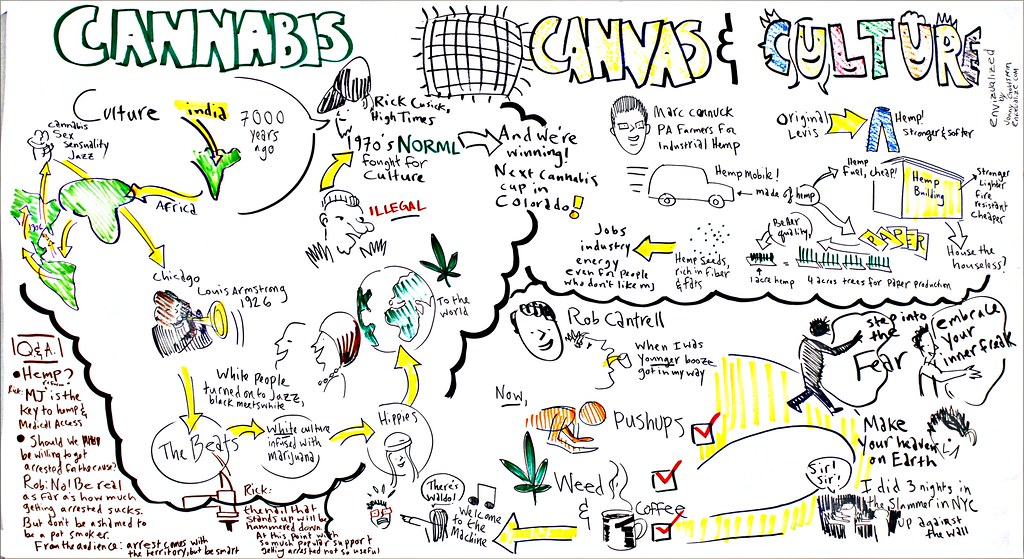 CANNABIS CANVAS & CULTURE
envizualized
by
Culture
india
7000
years
ago
cannabis
Sex
sensuality
Jazz
Africa
Chicago
Louis Armstrong
1926
White people
turned on to Jazz,
black meets white
The Beats
White culture
infused with
marijuana
Hippies
To the
world
Rick Cusick,
High Times
1970's NORML
fought for
Culture
ILLEGAL
And we're
winning!
Next cannabis
cup in
Colorado!
Marc Connuck
PA Farmers For
Industrial Hemp
Original
Levis
Hemp!
stronger & softer
Hemp Mobile!
made of hemp
Hemp
Fuel, cheap!
Hemp
Building
Stronger
Lighter
Fire
resistant
cheaper
House the
houseless?
PAPER
Better
quality
1 acre hemp = 4 acres trees for paper production
Hemp seeds,
rich in fiber
& fats
Jobs
industry
energy
even for people
who don't like mj
Rob Cantrell
When I was
younger booze
got in my way
Now,
Pushups
Weed
&
coffee
step into
the
Fear
embrace
your
inner freak
Make
your heaven
on Earth
Sir!
Sir!
I did 3 nights in
the Slammer in NYC
Up against
the wall
There's
Waldo!
Welcome
to the
Machine
Q&A
Hemp?
Rick:
MJ is the
key to hemp &
Medical Access
Should we
be willing to get
arrested for the cause?
Rob: No! Be real
as far as how much
getting arrested sucks.
But don't be ashamed to
be a pot smoker.
From the audience: arrest comes with
the territory, but be smart
Rick:
the nail that
stands up will be
hammered down.
At this point with
so much popular support
getting arrested not so useful